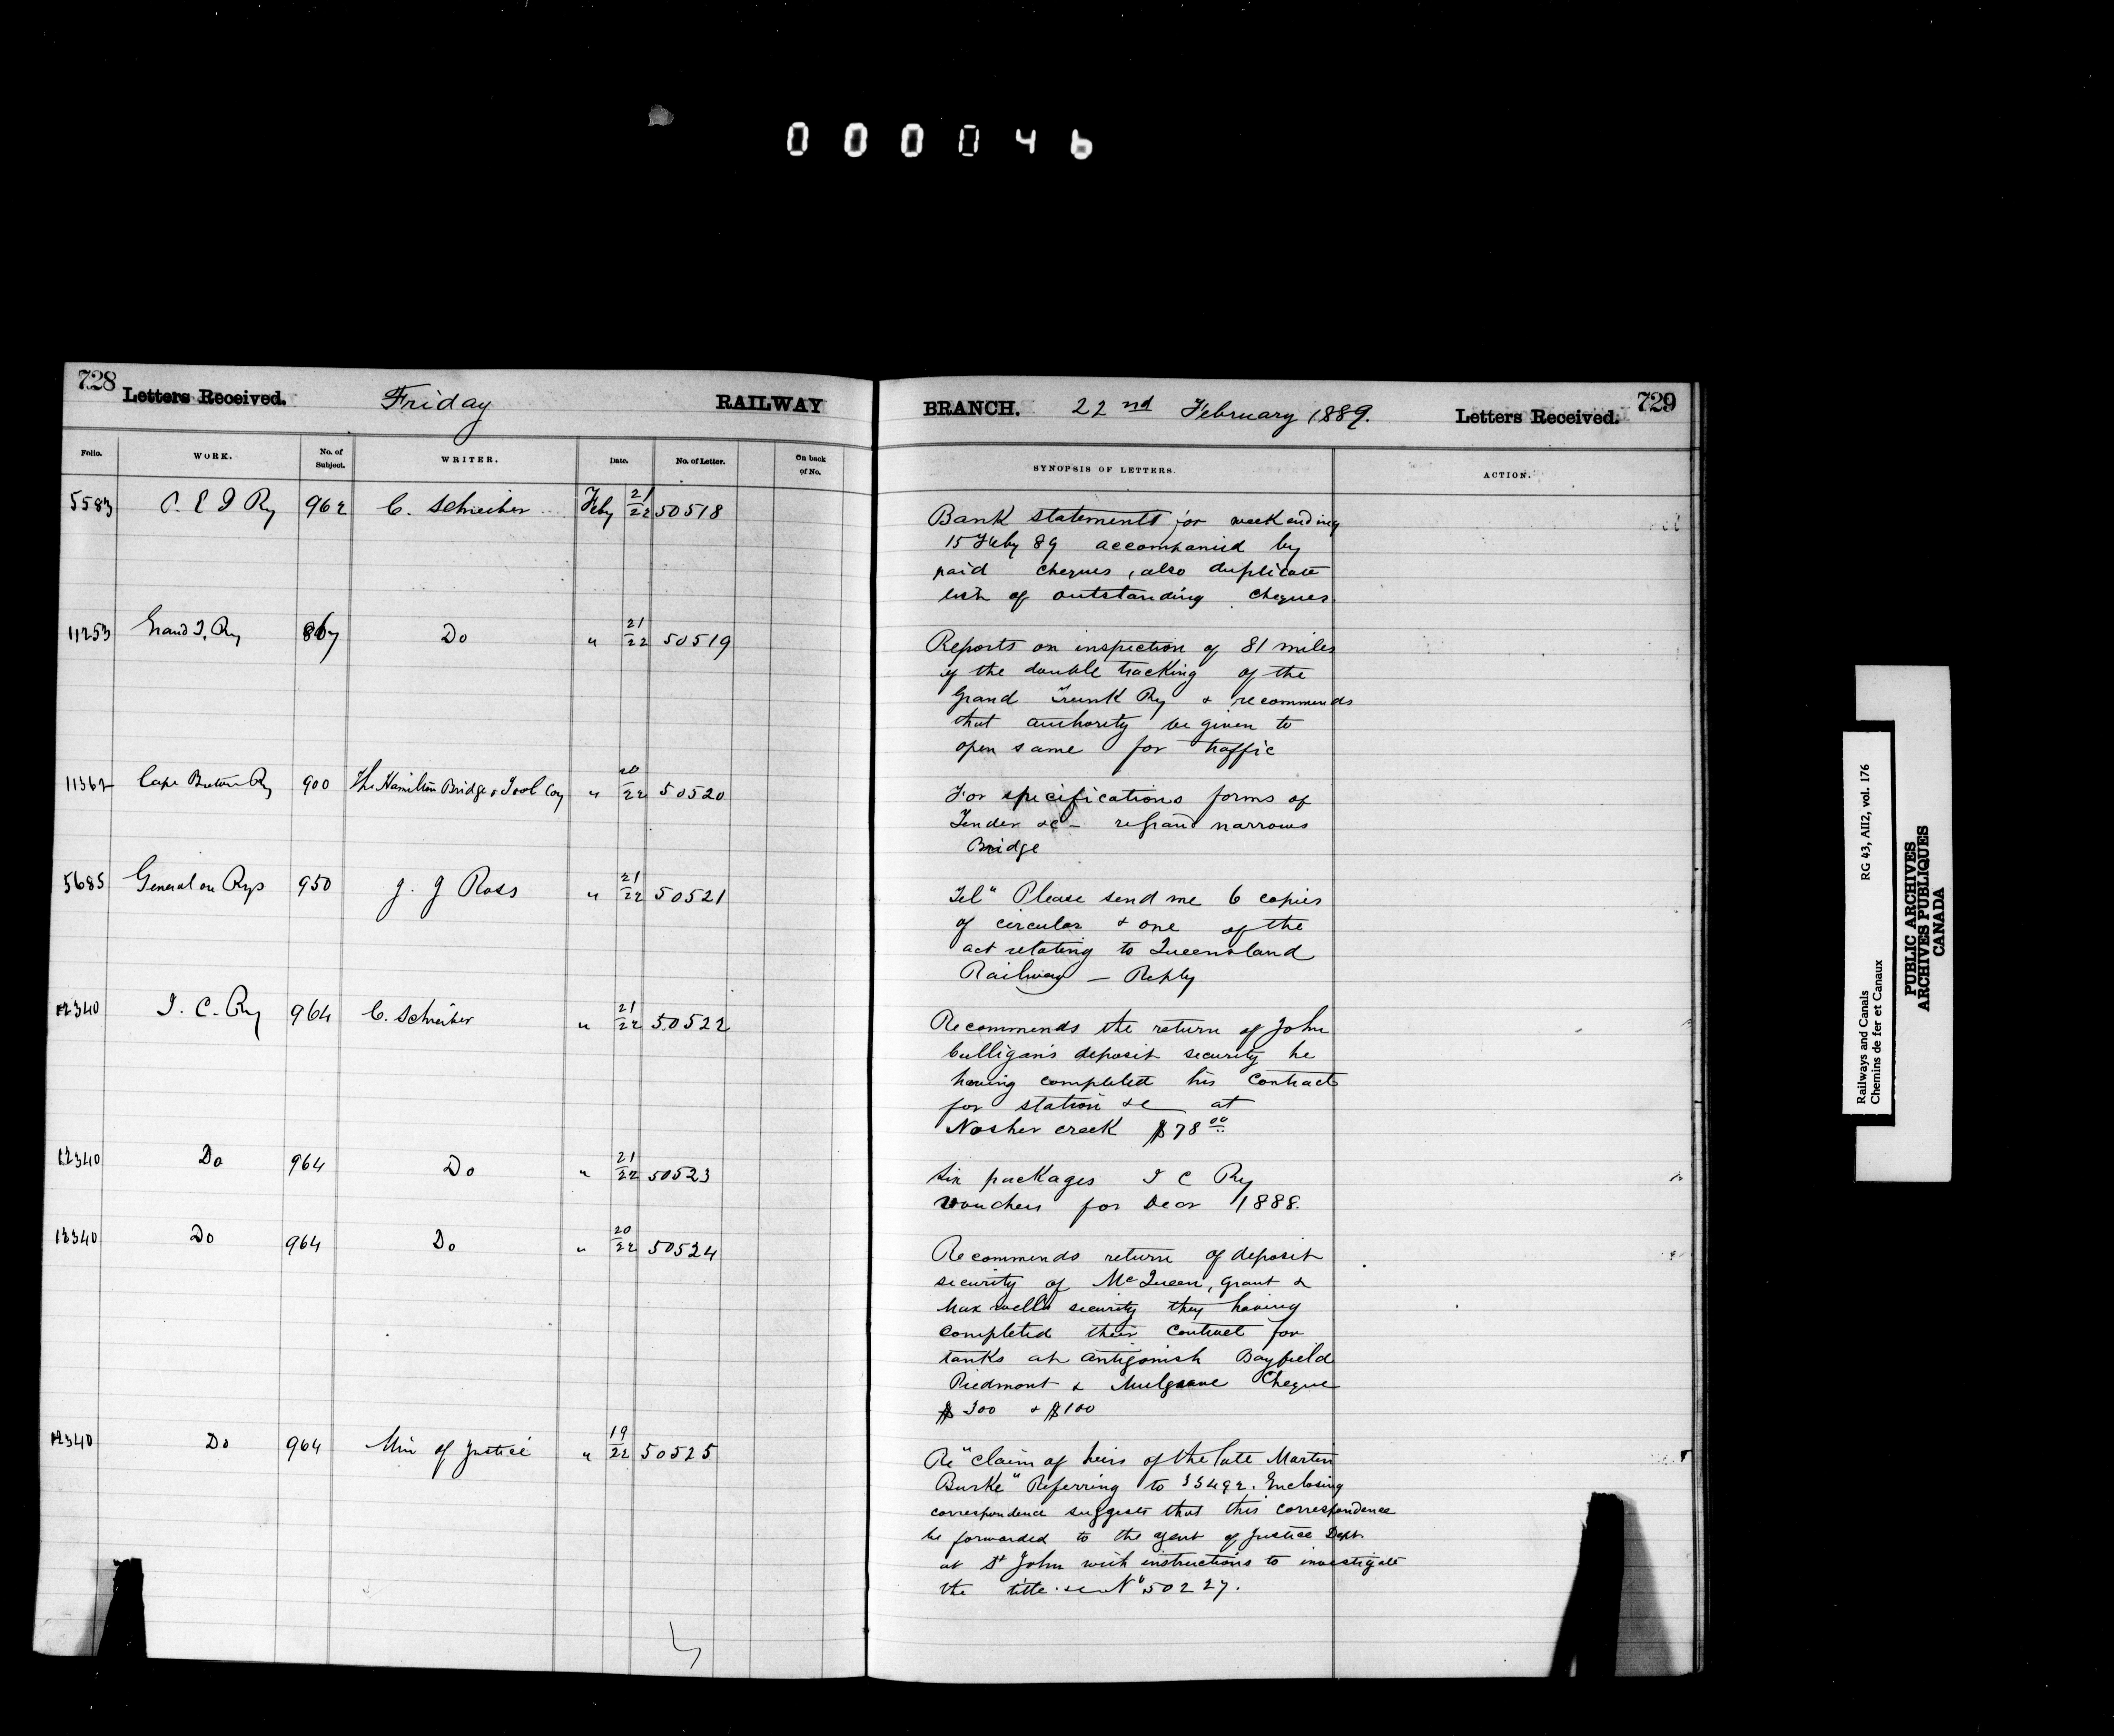 000046
728 Letters Received. Friday RAILWAY
BRANCH. 22nd February 1889. Letters Received. 729
Folio. WORK. No. of Subject. WRITER. Date. No. of Letter. On back of No.
SYNOPSIS OF LETTERS. ACTION.
5583 P. E I Ry 962 C. Schreiber Feby 21/22 50518
Bank statements for week ending
15 Feby 89 accompanied by
paid cheques, also duplicate
list of outstanding cheques
11253 Grand T. Ry 867 Do " 21/22 50519
Reports on inspection of 81 miles
of the double tracking of the
Grand Trunk Ry & recommends
that authority be given to
open same for traffic
11362 Cape Breton Ry 900 The Hamilton Bridge & Tool Coy " 20/22 50520
For specifications forms of
Tender &c - re Grand narrows
Bridge
5685 General on Rys 950 J. J Ross " 21/22 50521
Tel " Please send me 6 copies
of circular & one of the
act relating to Queensland
Railway — Reply
12340 I. C. Ry 964 C. Schreiber " 21/22 50522
Recommends the return of John
Culligan's deposit security he
having completed his contract
for station &c at
Nosher creek $78 00
12340 Do 964 Do " 21/22 50523
Six packages I C Ry
vouchers for Decr 1888.
12340 Do 964 Do " 20/22 50524
Recommends return of deposit
security of McQueen, Grant &
Maxwells security they having
completed their contract for
tanks at Antigonish Bayfield
Piedmont & Mulgrave Cheque
$300 & $100
12340 Do 964 Min of Justice " 19/22 50525
Re "claim of heirs of the late Martin
Burke" Referring to 35492. Enclosing
correspondence suggests that this correspondence
be forwarded to the agent of Justice Dept.
at St John with instructions to investigate
the title. see No 50227.
Railways and Canals RG 43, AII2, vol. 176
Chemins de fer et Canaux
PUBLIC ARCHIVES
ARCHIVES PUBLIQUES
CANADA